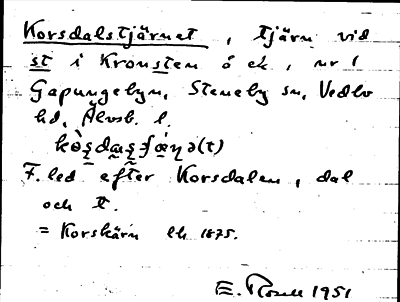 Korsdalstjärnet, tjärn vid
st i Kronsten ö ek, nr 1
Gapungebyn, Steneby sn, Vedbo
hd, Älvsb. l.
F. led efter Korsdalen, dal
och t.
= Korskärn ek 1875.
E. 1951